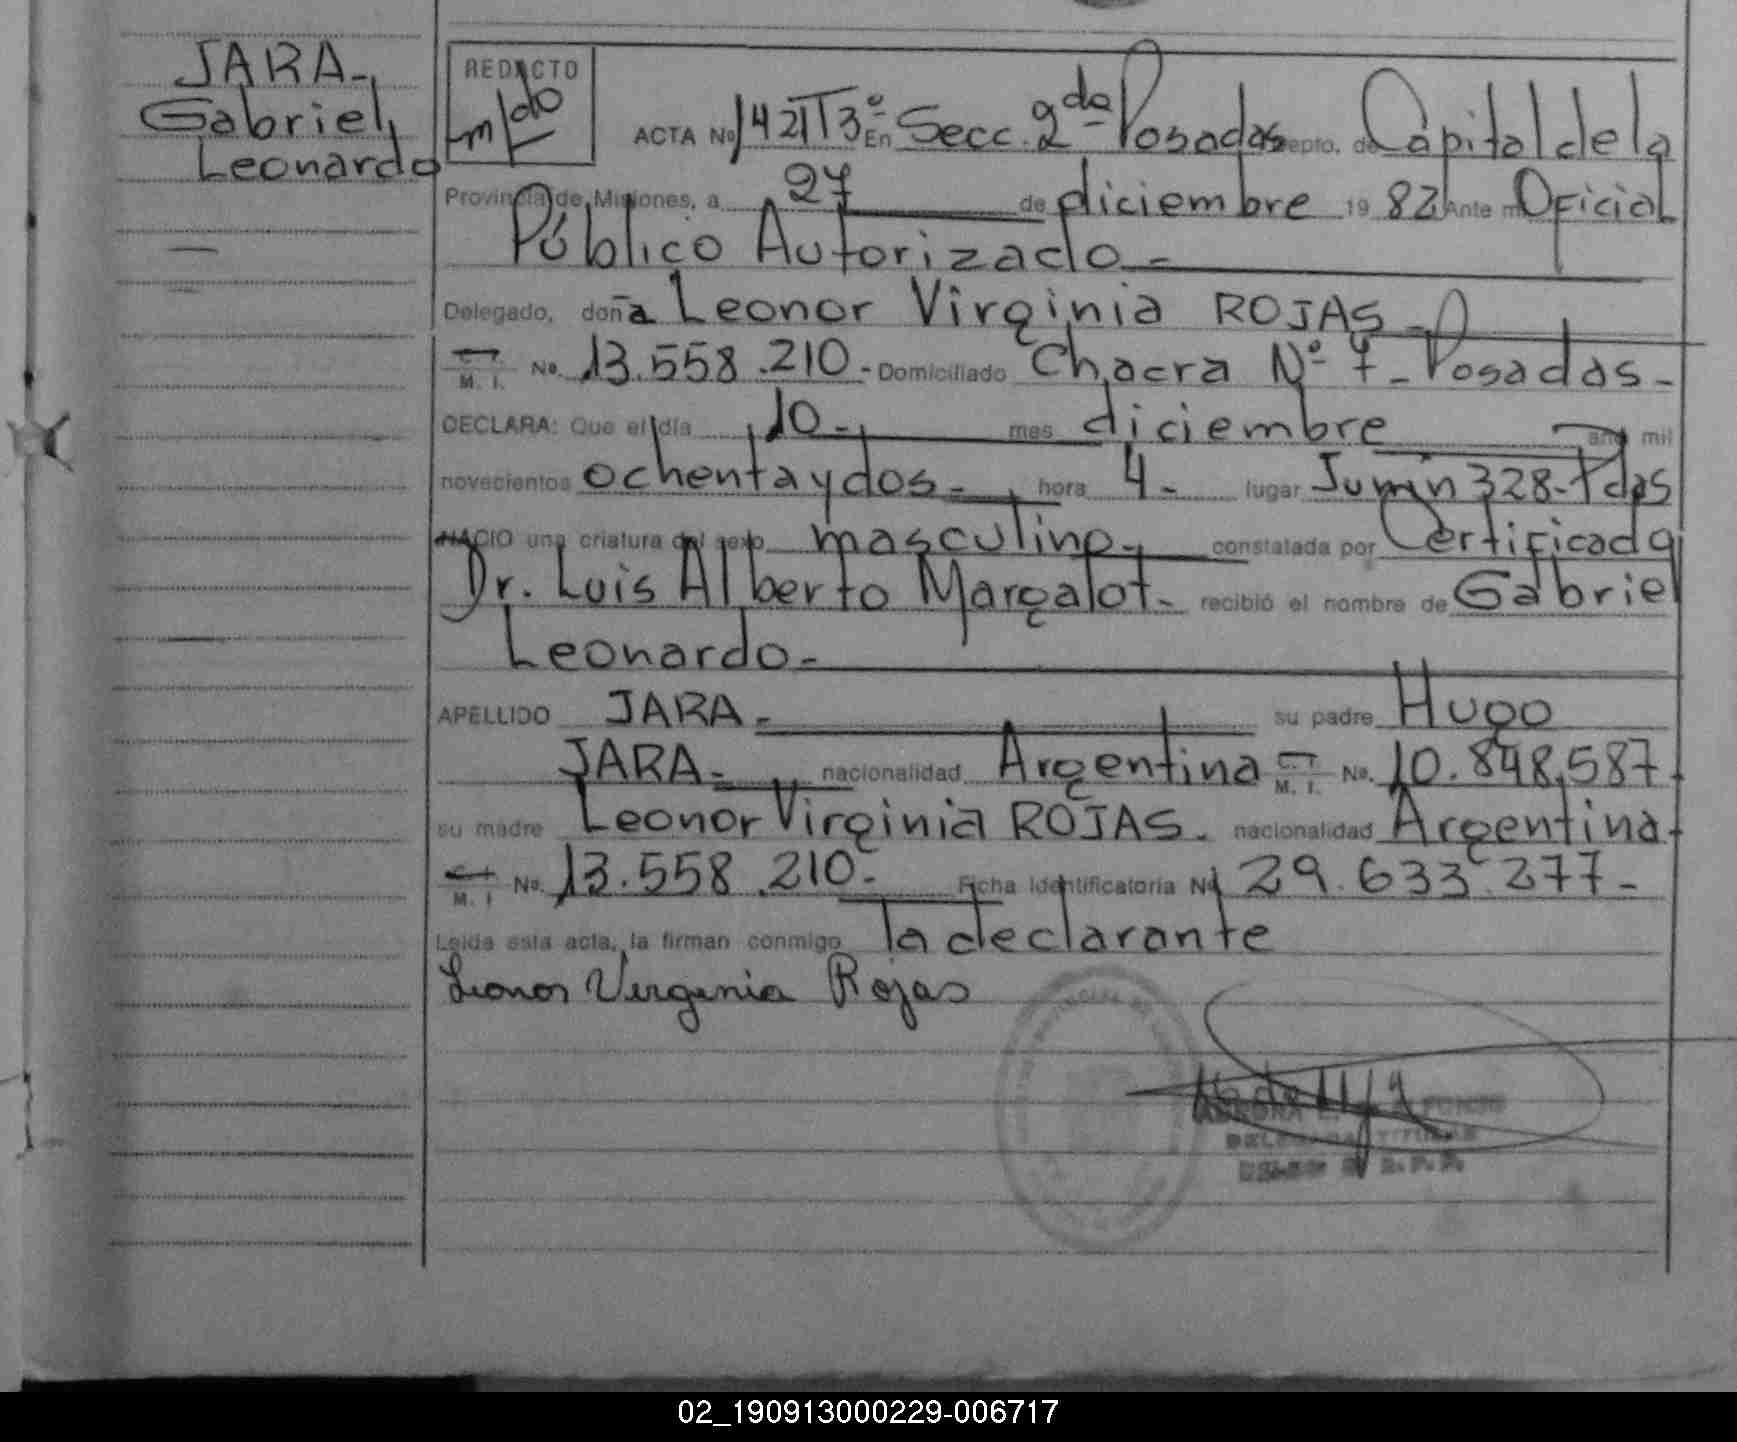 JARA-
Gabriel
Leonardo
REDACTO
ACTA Nº 1421T3º En Secc. 2da Posadas Depto. de Capital de la
Provincia de Misiones, a 27 de diciembre 19 82 Ante mí Oficial
Público Autorizado-
Delegado, doña Leonor Virginia ROJAS-
M. I. No. 13.558.210- Domiciliado Chacra Nº 7- Posadas-
DECLARA: Que el día 10- mes diciembre año mil
novecientos ochentaydos- hora 4- lugar Junín 328-Pdas
NACIO una criatura del sexo masculino- constatada por Certificado
Dr. Luis Alberto Margalot- recibió el nombre de Gabriel
Leonardo-
APELLIDO JARA- su padre Hugo
JARA- nacionalidad Argentina M. I. No. 10.848.587-
su madre Leonor Virginia ROJAS. nacionalidad Argentina-
M. I No. 13.558.210- Ficha Identificatoria Nº 29.633.277-
Leída esta acta, la firman conmigo la declarante
Leonor Virginia Rojas
02_190913000229-006717